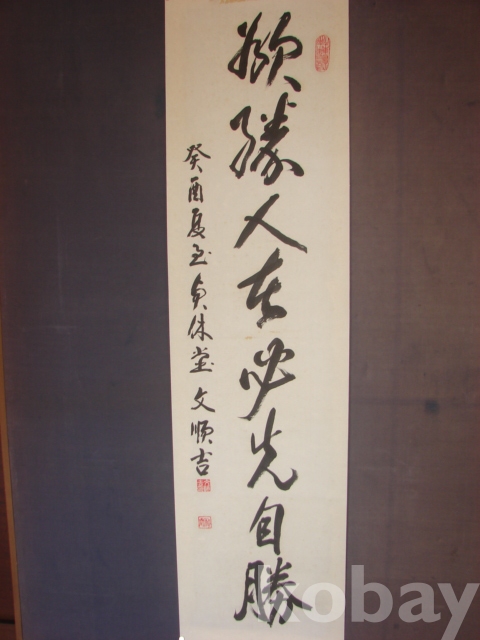 欲勝人者必先自勝
癸酉夏至 貞休堂 文順吉
kobay